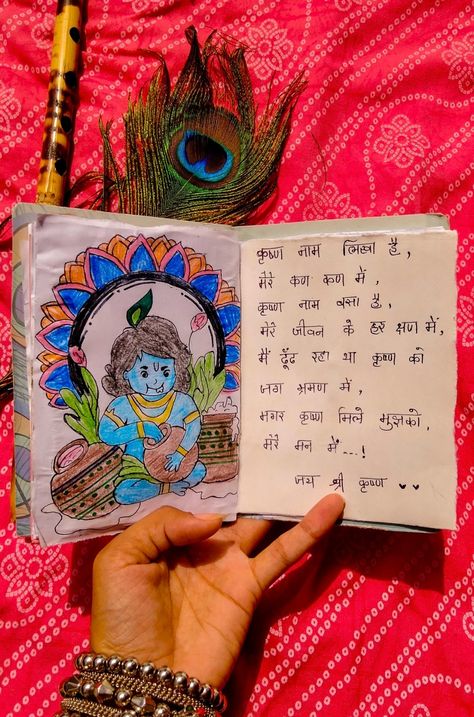 कृष्ण नाम लिखा है,
मेरे कण कण में,
कृष्ण नाम बसा है,
मेरे जीवन के हर क्षण में,
मैं ढूँढ रहा था कृष्ण को
जग भ्रमण में,
मगर कृष्ण मिले मुझको,
मेरे मन में...!
जय श्री कृष्ण